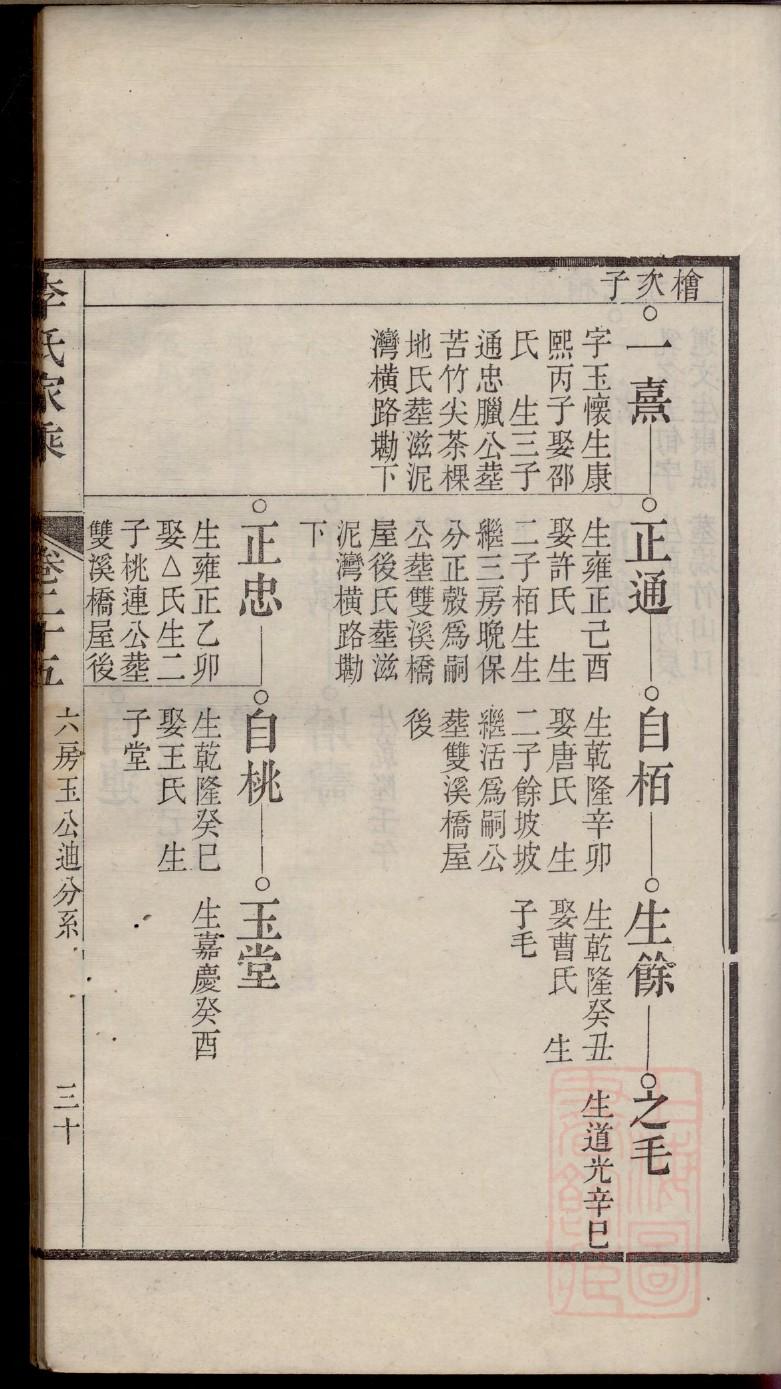 檜次子
一熹
字玉懷生康
熙丙子娶邵
氏 生三子
通忠臘公塟
苦竹尖茶棵
地氏塟滋泥
灣橫路墈下
正通
生雍正己酉
娶許氏 生
二子栢生生
繼三房晚保
分正殻爲嗣
公塟雙溪橋
屋後氏塟滋
泥灣橫路墈
下
自栢
生乾隆辛卯
娶唐氏 生
二子餘坡坡
繼活爲嗣公
塟雙溪橋屋
後
生餘
生乾隆癸丑
娶曹氏 生
子毛
之毛
生道光辛巳
正忠
生雍正乙卯
娶△氏生二
子桃連公塟
雙溪橋屋後
自桃
生乾隆癸巳
娶王氏 生
子堂
玉堂
生嘉慶癸酉
李氏家乘
卷二十五
六房玉公迪分系
三十